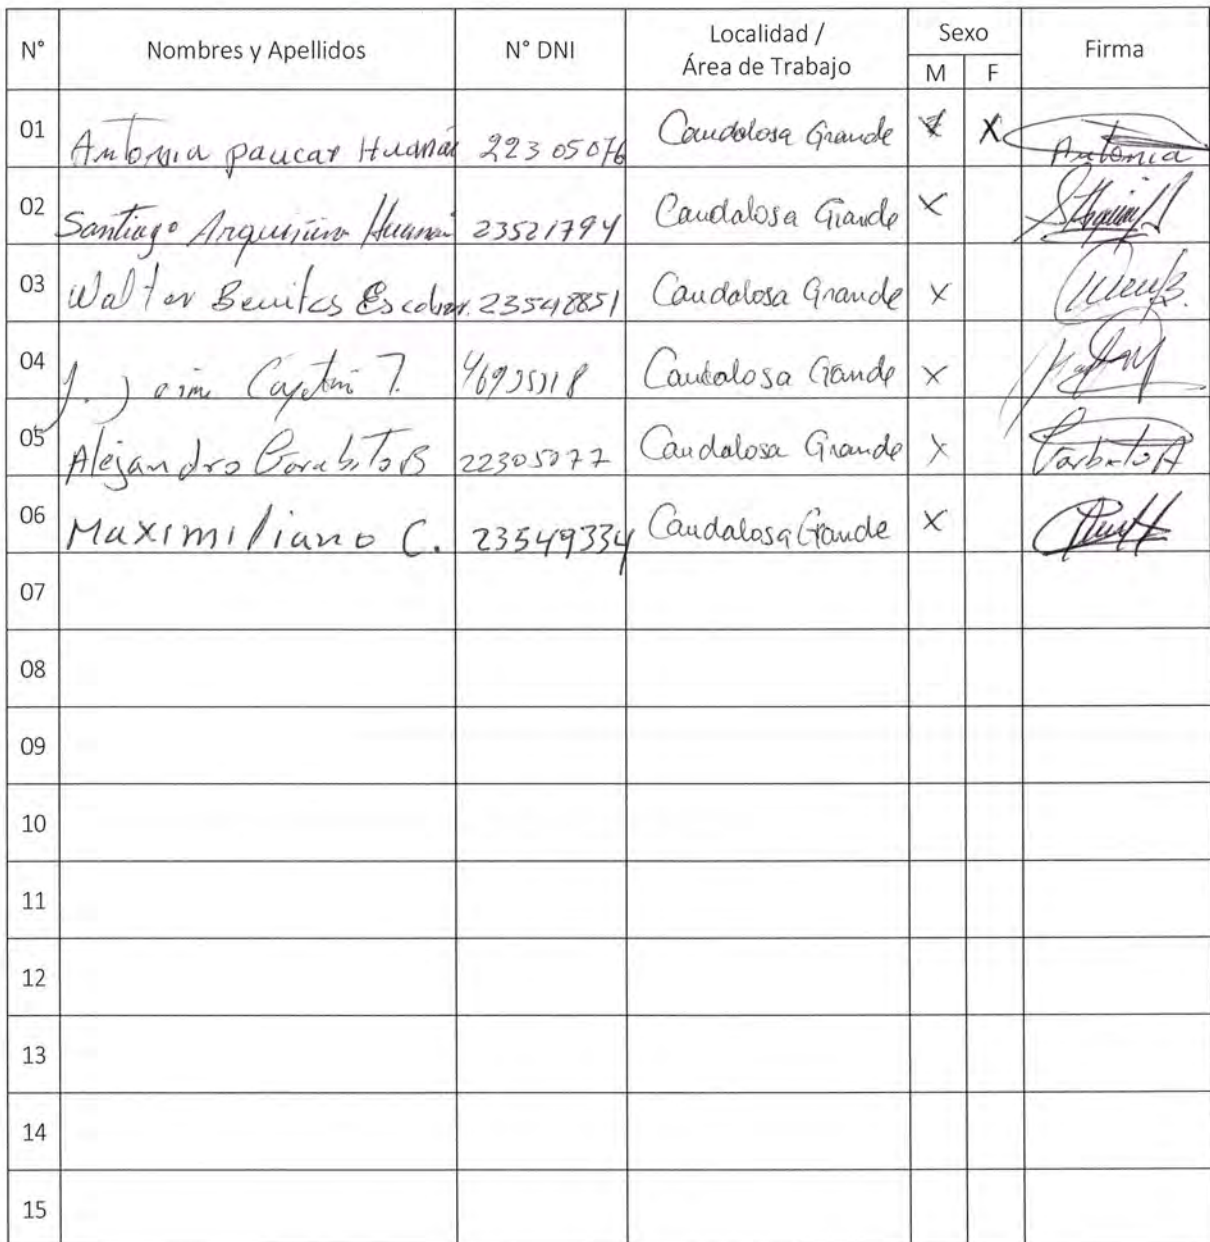 N° Nombres y Apellidos N° DNI Localidad / Área de Trabajo Sexo M F Firma
01 Antonia paucar Huamán 22305076 Caudalosa Grande X X Antonia
02 Santiago 23521794 Caudalosa Grande X
03 Walter Benites Escobar. 23548851 Caudalosa Grande X
04 J. Jaime T. Caudalosa Grande X
05 Alejandro 22305077 Caudalosa Grande X
06 Maximiliano C. 23549334 Caudalosa Grande X
07
08
09
10
11
12
13
14
15